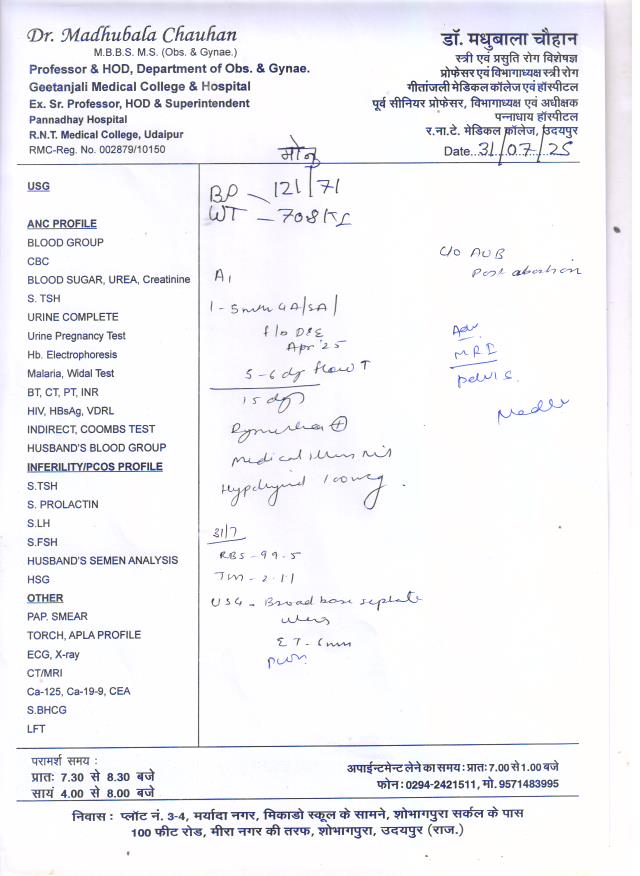 Dr. Madhubala Chauhan
M.B.B.S. M.S. (Obs. & Gynae.)
Professor & HOD, Department of Obs. & Gynae.
Geetanjali Medical College & Hospital
Ex. Sr. Professor, HOD & Superintendent
Pannadhay Hospital
R.N.T. Medical College, Udaipur
RMC-Reg. No. 002879/10150
डॉ. मधुबाला चौहान
स्त्री एवं प्रसुति रोग विशेषज्ञ
प्रोफेसर एवं विभागाध्यक्ष स्त्री रोग
गीतांजली मेडिकल कॉलेज एवं हॉस्पीटल
पूर्व सीनियर प्रोफेसर, विभागाध्यक्ष एवं अधीक्षक
पन्नाधाय हॉस्पीटल
र.ना.टे. मेडिकल कॉलेज, उदयपुर
Date..31/07/25
मोनु
USG
ANC PROFILE
BLOOD GROUP
CBC
BLOOD SUGAR, UREA, Creatinine
S. TSH
URINE COMPLETE
Urine Pregnancy Test
Hb. Electrophoresis
Malaria, Widal Test
BT, CT, PT, INR
HIV, HBsAg, VDRL
INDIRECT, COOMBS TEST
HUSBAND'S BLOOD GROUP
INFERILITY/PCOS PROFILE
S.TSH
S. PROLACTIN
S.LH
S.FSH
HUSBAND'S SEMEN ANALYSIS
HSG
OTHER
PAP. SMEAR
TORCH, APLA PROFILE
ECG, X-ray
CT/MRI
Ca-125, Ca-19-9, CEA
S.BHCG
LFT
BP - 121/71
WT - 70.8 KG
A1
f/o D&E
Apr '25
5-6 dy flow ↑
15 dy
Medical illness Nil
100 mcg
31/7
RBS - 99.5
USG - Broad base septate
ET - 6mm
C/O AUB
Post abortion
Adv
MRI
pelvis
परामर्श समय :
प्रातः 7.30 से 8.30 बजे
सायं 4.00 से 8.00 बजे
अपाईन्टमेन्ट लेने का समय : प्रातः 7.00 से 1.00 बजे
फोन : 0294-2421511, मो. 9571483995
निवास : प्लॉट नं. 3-4, मर्यादा नगर, मिकाडो स्कूल के सामने, शोभागपुरा सर्कल के पास
100 फीट रोड, मीरा नगर की तरफ, शोभागपुरा, उदयपुर (राज.)